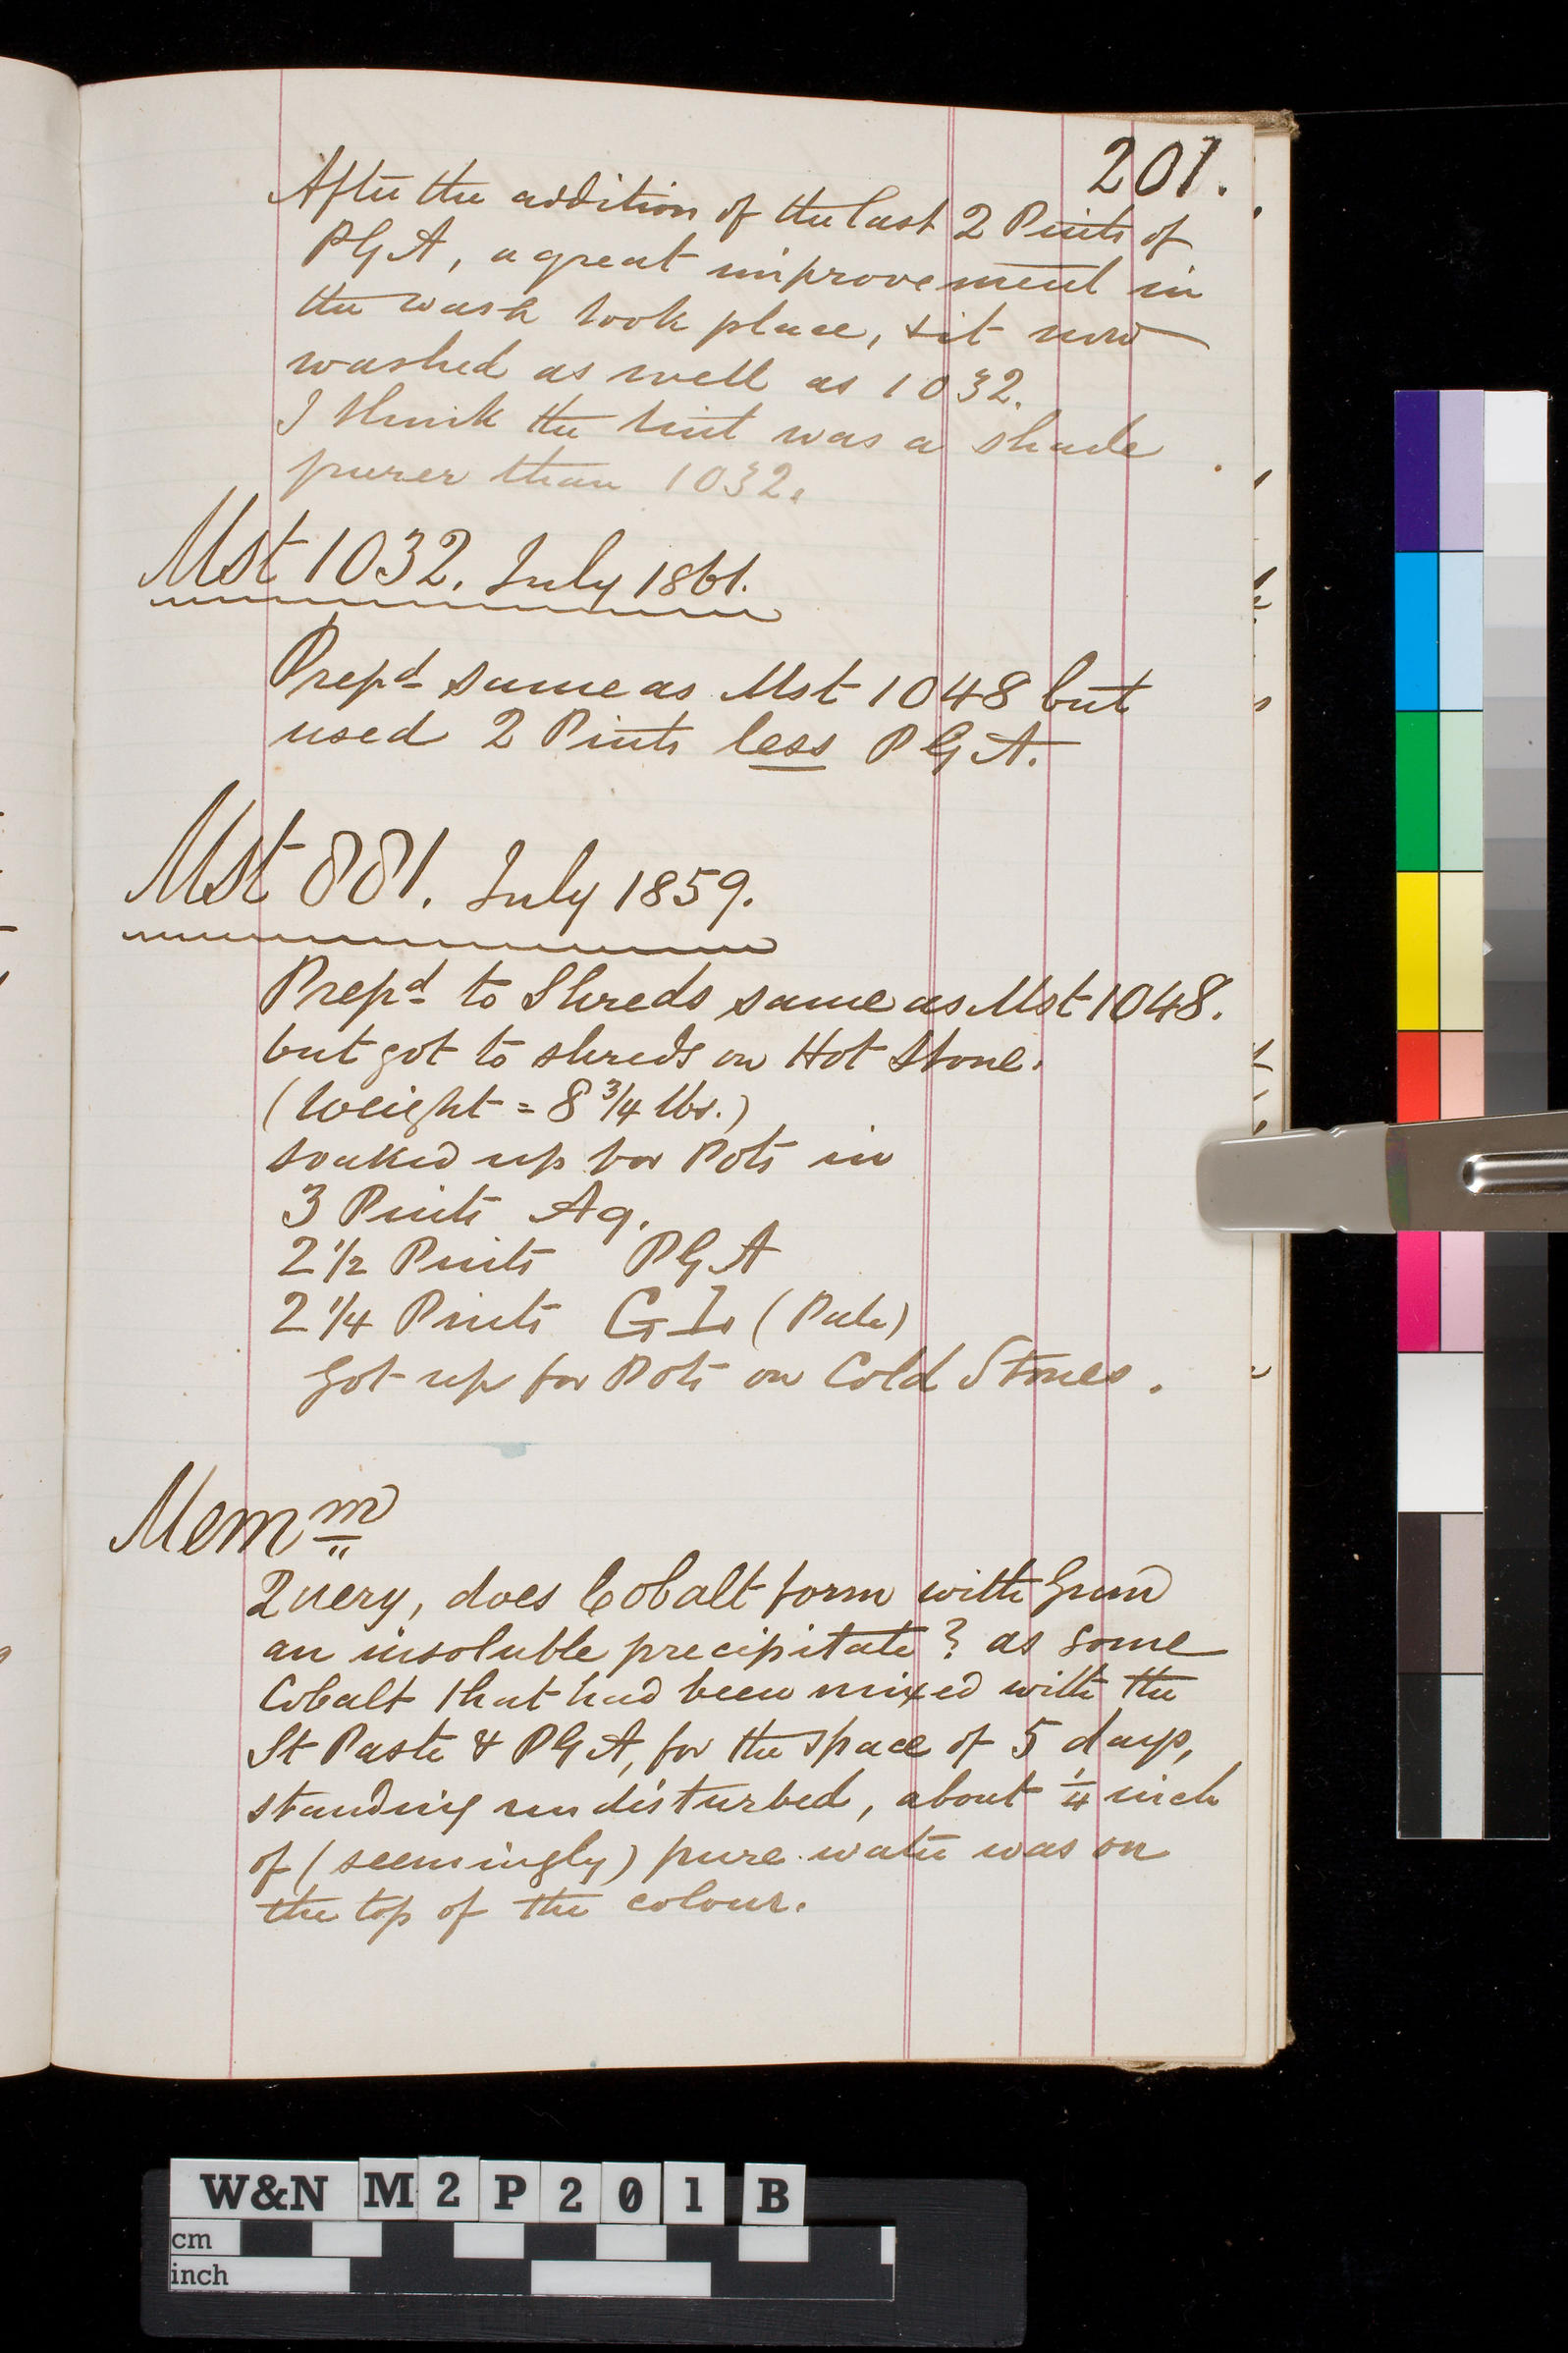 201.
After the addition of the last 2 Pints of
PGA, a great improvement in
the wash took place, & it now
washed as well as 1032.
I think the tint was a shade
purer than 1032.
Mst 1032. July 1861.
Prepd same as Mst 1048 but
used 2 Pints less PGA.
Mst 881. July 1859.
Prepd to Shreds same as Mst 1048.
but got to shreds on Hot Stone.
(Weight = 8 3/4 lbs.)
soaked up for Pots in
3 Pints Aq.
2 1/2 Pints PGA
2 1/4 Pints G I (Pale)
got up for Pots on Cold Stones.
Memm
Query, does Cobalt form with Gum
an insoluble precipitate? as some
Cobalt that had been mixed with the
St Paste & PGA, for the space of 5 days,
standing undisturbed, about 1/4 inch
of (seemingly) pure water was on
the top of the colour.
W&N M2P201 B
cm
inch